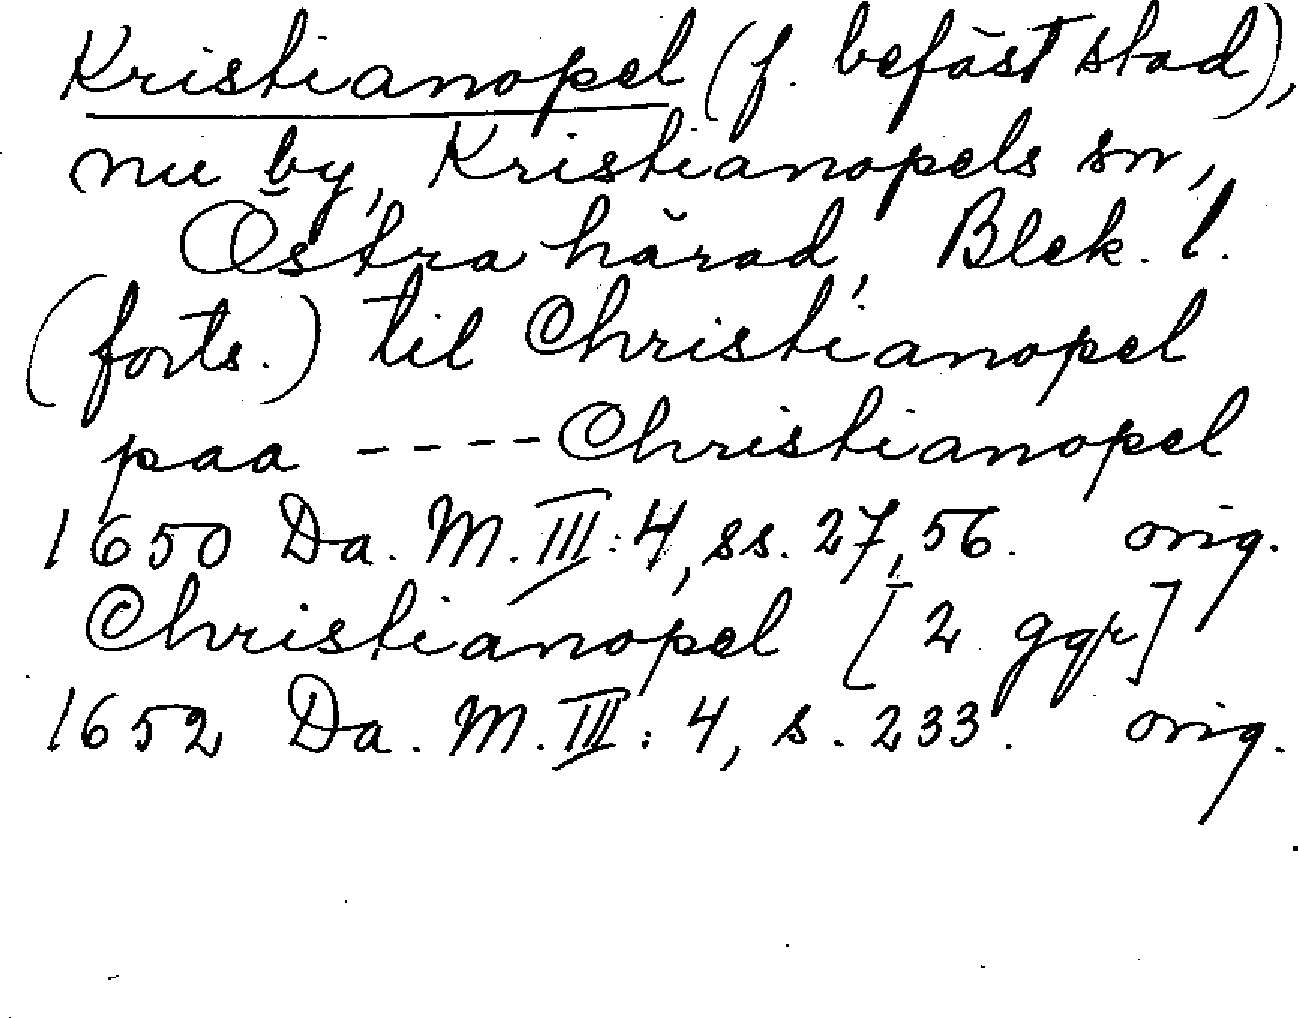 Kristianopel (f. befäst stad),
nu by, Kristianopels sn,
Östra härad, Blek. l.
(forts.) til Christianopel
paa ---- Christianopel
1650 Da. M. III: 4, ss. 27, 56. orig.
Christianopel [2 ggr]
1652 Da. M. III: 4, s. 233. orig.